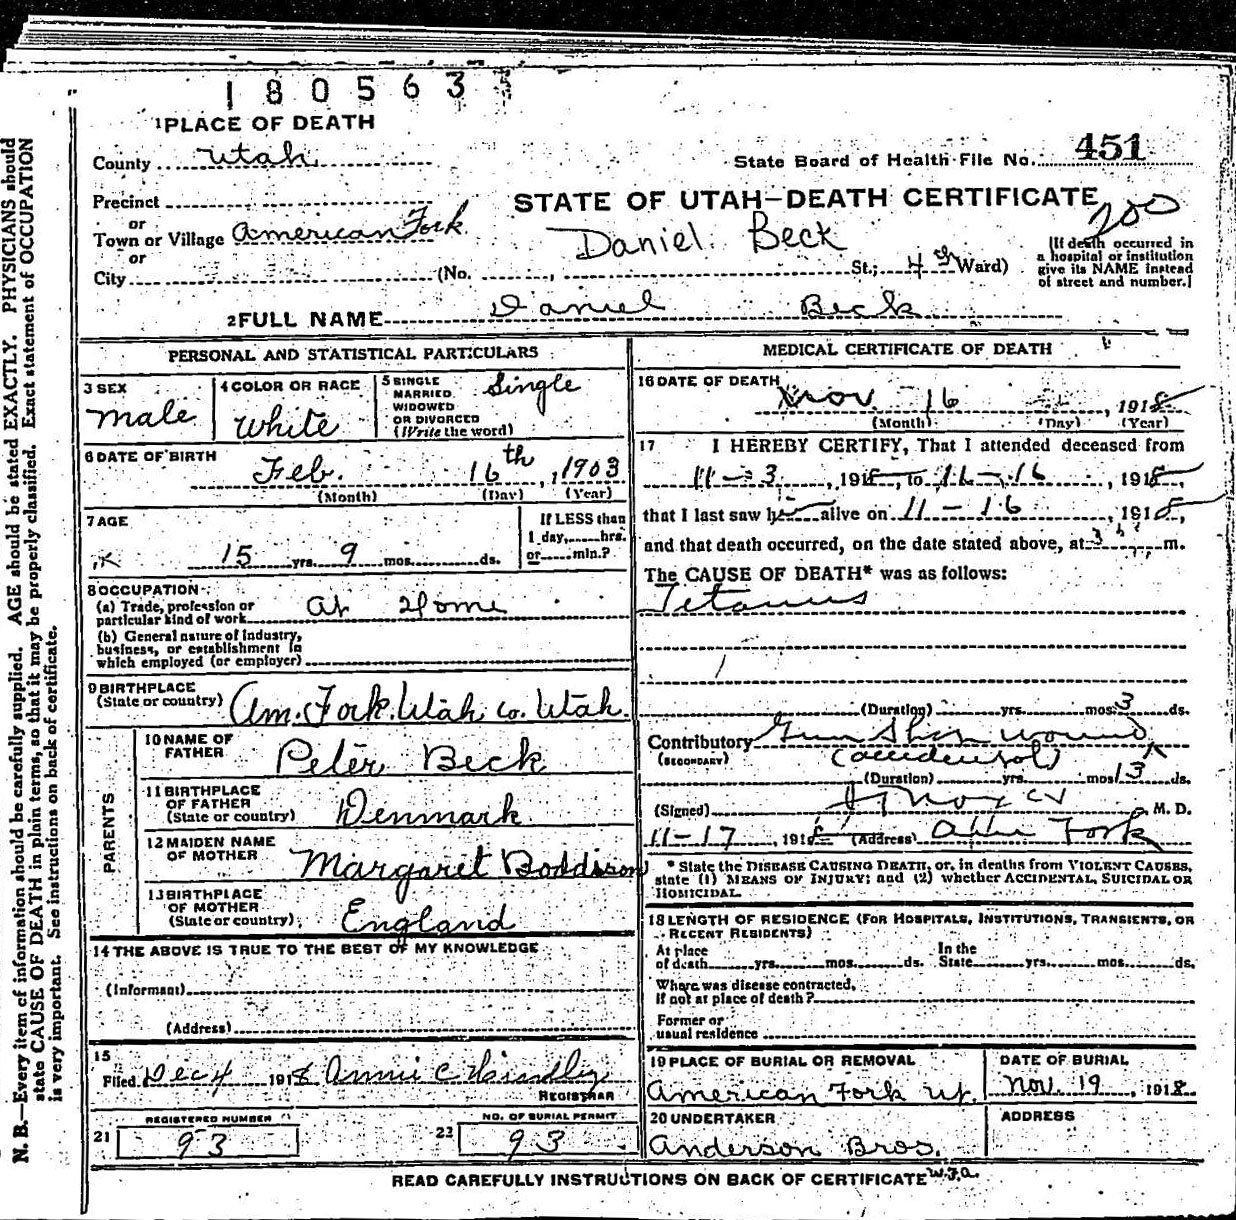 180563
1 PLACE OF DEATH
County Utah
State Board of Health File No. 451
Precinct
STATE OF UTAH—DEATH CERTIFICATE
200
or
Town or Village American Fork
or
Daniel Beck
City (No. , St.; 4th Ward)
[If death occurred in
a hospital or institution
give its NAME instead
of street and number.]
2 FULL NAME Daniel Beck
PERSONAL AND STATISTICAL PARTICULARS
3 SEX
male
4 COLOR OR RACE
White
5 SINGLE
MARRIED
WIDOWED
OR DIVORCED
(Write the word)
Single
6 DATE OF BIRTH
Feb. 16th, 1903
(Month) (Day) (Year)
7 AGE
15 yrs. 9 mos. ds.
If LESS than
1 day, hrs.
or min.?
8 OCCUPATION
(a) Trade, profession or
particular kind of work At Home
(b) General nature of industry,
business, or establishment in
which employed (or employer)
9 BIRTHPLACE
(State or country) Am. Fork. Utah Co. Utah.
PARENTS
10 NAME OF
FATHER Peter Beck
11 BIRTHPLACE
OF FATHER
(State or country) Denmark
12 MAIDEN NAME
OF MOTHER Margaret Boddison
13 BIRTHPLACE
OF MOTHER
(State or country) England
14 THE ABOVE IS TRUE TO THE BEST OF MY KNOWLEDGE
(Informant)
(Address)
15
Filed Dec 4 1918 Annie C.
REGISTRAR
REGISTERED NUMBER
21 93
NO. OF BURIAL PERMIT
22 93
MEDICAL CERTIFICATE OF DEATH
16 DATE OF DEATH
Nov. 16, 1918
(Month) (Day) (Year)
17 I HEREBY CERTIFY, That I attended deceased from
11-3, 1918, to 11-16, 1918,
that I last saw h alive on 11-16, 1918,
and that death occurred, on the date stated above, at 3 m.
The CAUSE OF DEATH* was as follows:
Tetanus
(Duration) yrs. mos. 3 ds.
Contributory Gun Shot wound
(SECONDARY) (accidental)
(Duration) yrs. mos. 13 ds.
(Signed) M. D.
11-17, 1918 (Address) Am Fork
* State the DISEASE CAUSING DEATH, or, in deaths from VIOLENT CAUSES,
state (1) MEANS OF INJURY; and (2) whether ACCIDENTAL, SUICIDAL OR
HOMICIDAL.
18 LENGTH OF RESIDENCE (FOR HOSPITALS, INSTITUTIONS, TRANSIENTS, OR
RECENT RESIDENTS)
At place In the
of death yrs. mos. ds. State yrs. mos. ds.
Where was disease contracted,
If not at place of death?
Former or
usual residence
19 PLACE OF BURIAL OR REMOVAL
American Fork Ut.
DATE OF BURIAL
Nov. 19, 1918
20 UNDERTAKER
Anderson Bros.
ADDRESS
READ CAREFULLY INSTRUCTIONS ON BACK OF CERTIFICATE
N. B.—Every item of information should be carefully supplied. AGE should be stated EXACTLY. PHYSICIANS should
state CAUSE OF DEATH in plain terms, so that it may be properly classified. Exact statement of OCCUPATION
is very important. See instructions on back of certificate.